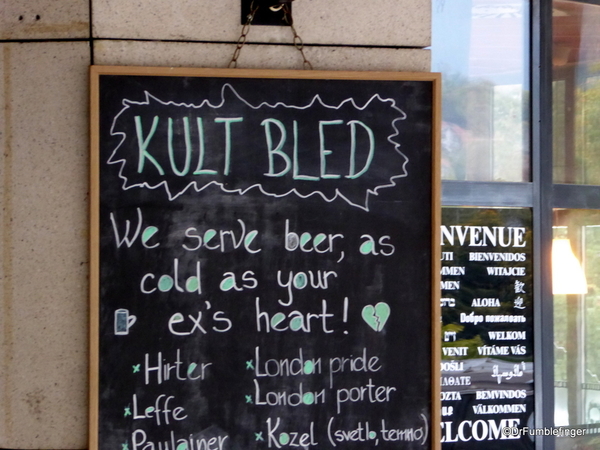 KULT BLED
We serve beer, as
cold as your
ex's heart!
*Hirter
*Leffe
*Paulaner
*London pride
*London porter
*Kozel (svetlo, temno)
BIENVENIDOS
WITAJCIE
歡
ALOHA 迎
Добро пожаловать
WELKOM
VENIT VÍTÁME VÁS
BEMVINDOS
VÄLKOMMEN
©DrFumblefinger